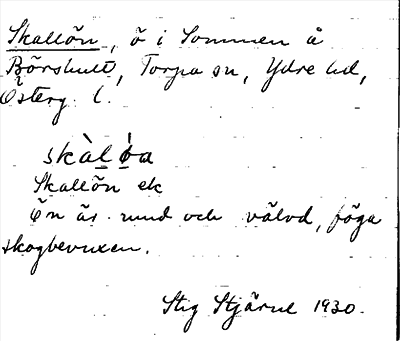 Skallön, ö i Sommen å
Börshult, Torpa sn, Ydre hd,
Österg. l.
skàl ǿa
Skallön ek
Ön är rund och välvd, föga
skogbevuxen.
Stig Stjärne 1930.